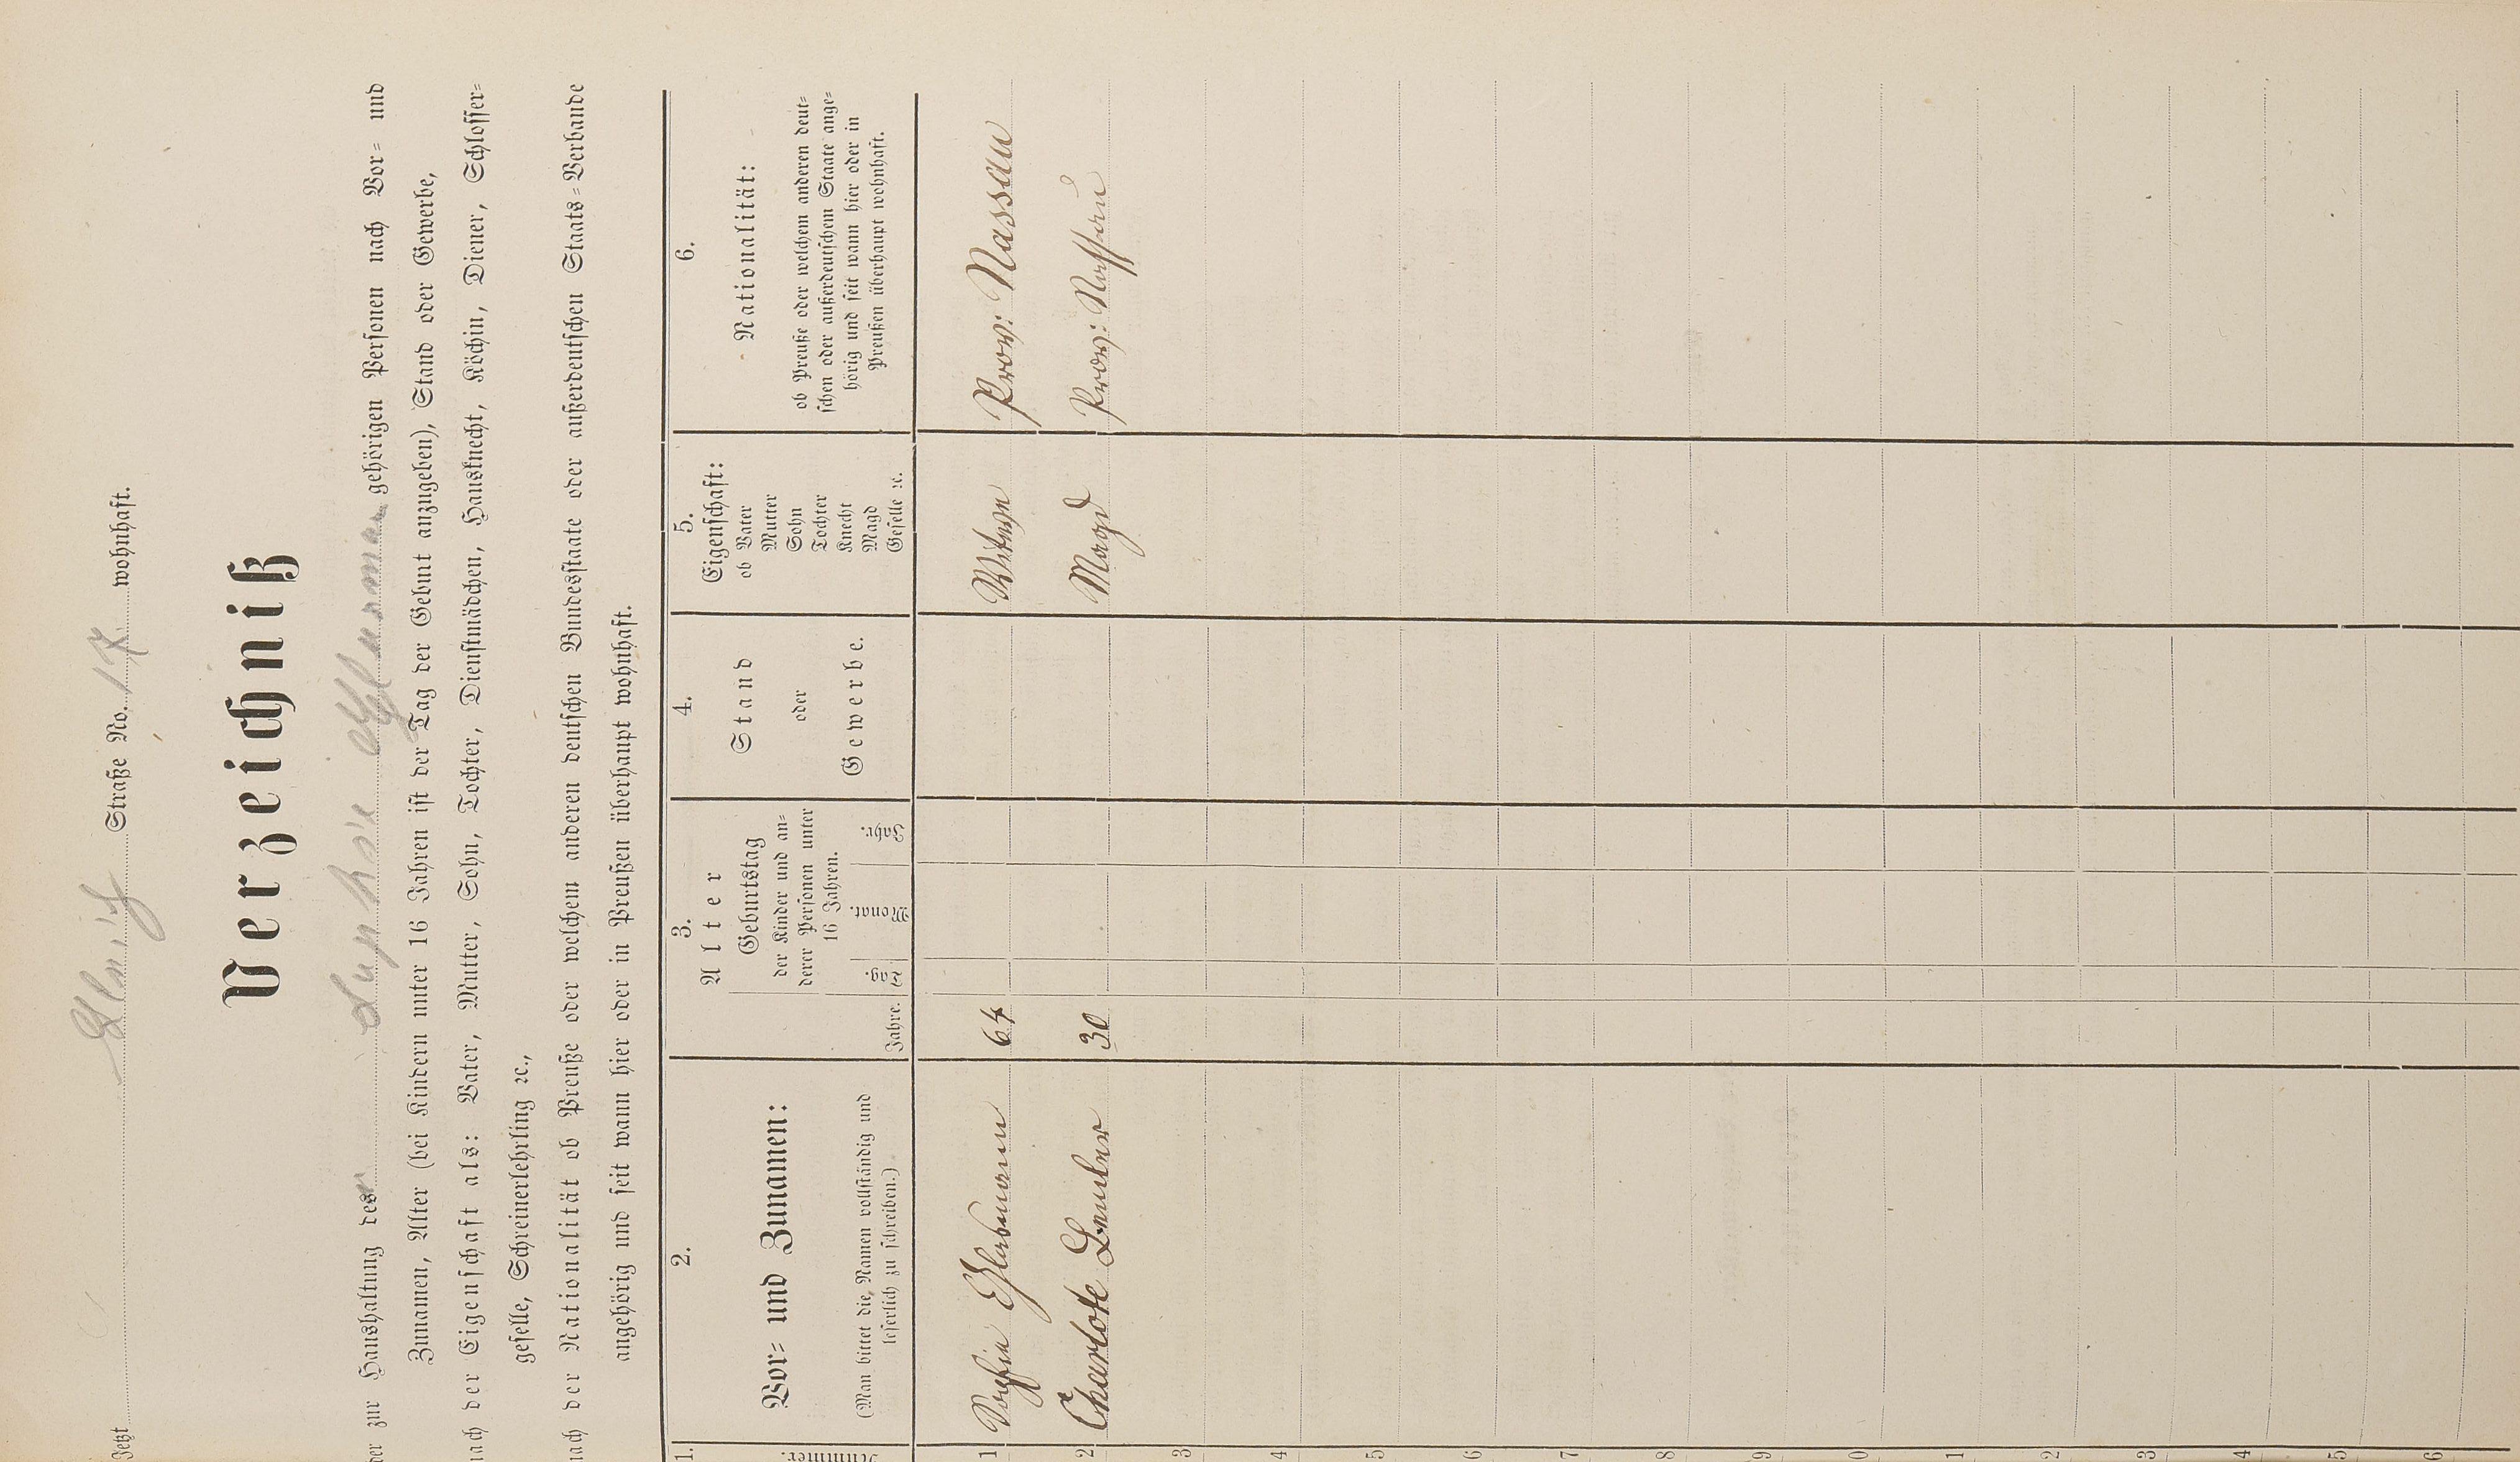 Jetzt Straße No. 17 wohnhaft.
Verzeichniß
der zur Haushaltung des gehörigen Personen nach Vor- und
Zunamen, Alter (bei Kindern unter 16 Jahren ist der Tag der Geburt anzugeben), Stand oder Gewerbe,
nach der Eigenschaft als: Vater, Mutter, Sohn, Tochter, Dienstmädchen, Hausknecht, Köchin, Diener, Schlosser-
geselle, Schreinerlehrling ꝛc.,
nach der Nationalität ob Preuße oder welchem anderen deutschen Bundesstaate oder außerdeutschen Staats-Verbande
angehörig und seit wann hier oder in Preußen überhaupt wohnhaft.
1.
Nummer.
2.
Vor- und Zunamen:
(Man bittet die Namen vollständig und
leserlich zu schreiben.)
3.
Alter
Jahre.
Geburtstag
der Kinder und an-
derer Personen unter
16 Jahren.
Tag. Monat. Jahr.
4.
Stand
oder
Gewerbe.
5.
Eigenschaft:
ob Vater
Mutter
Sohn
Tochter
Knecht
Magd
Geselle ꝛc.
6.
Nationalität:
ob Preuße oder welchem anderen deut-
schen oder außerdeutschem Staate ange-
hörig und seit wann hier oder in
Preußen überhaupt wohnhaft.
1 Sophie 64 Witwe Prov: Nassau
2 Charlotte 30 Magd Prov: Nassau
3
4
5
6
7
8
9
0
1
2
3
4
5
6